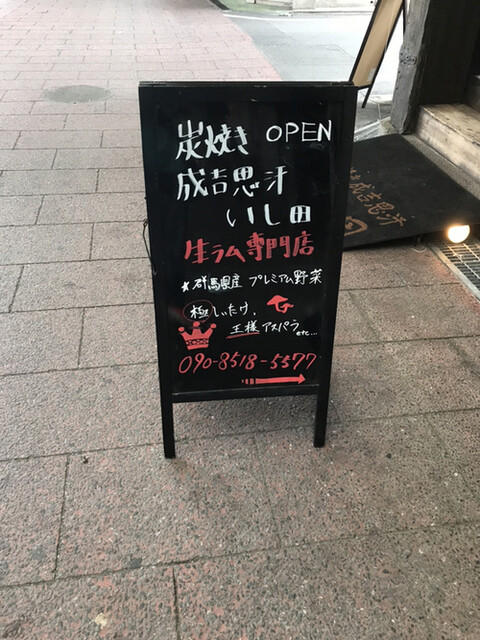 炭焼き OPEN
成吉思汗
いし田
生ラム専門店
★群馬県産 プレミアム野菜
極しいたけ、
王様アスパラ
etc...
090-8518-5577
成吉思汗